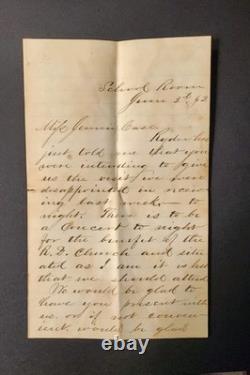 School Room
June 2d '62
Miss Jennie Case
Ryder has
just told me that you
were intending to give
us the visit we were
disappointed in receiv
ing last week — to
night. There is to be
a Concert to night
for the benefit of the
R. D. Church and situ
ated as I am it is best
that we should attend
We would be glad to
have you present with
us, or if not conven
ient, would be glad